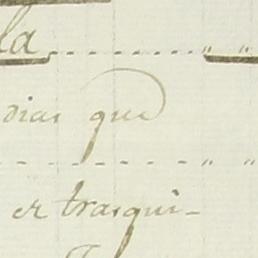 la ........ " "
dias que
........ " "
er trasqui-